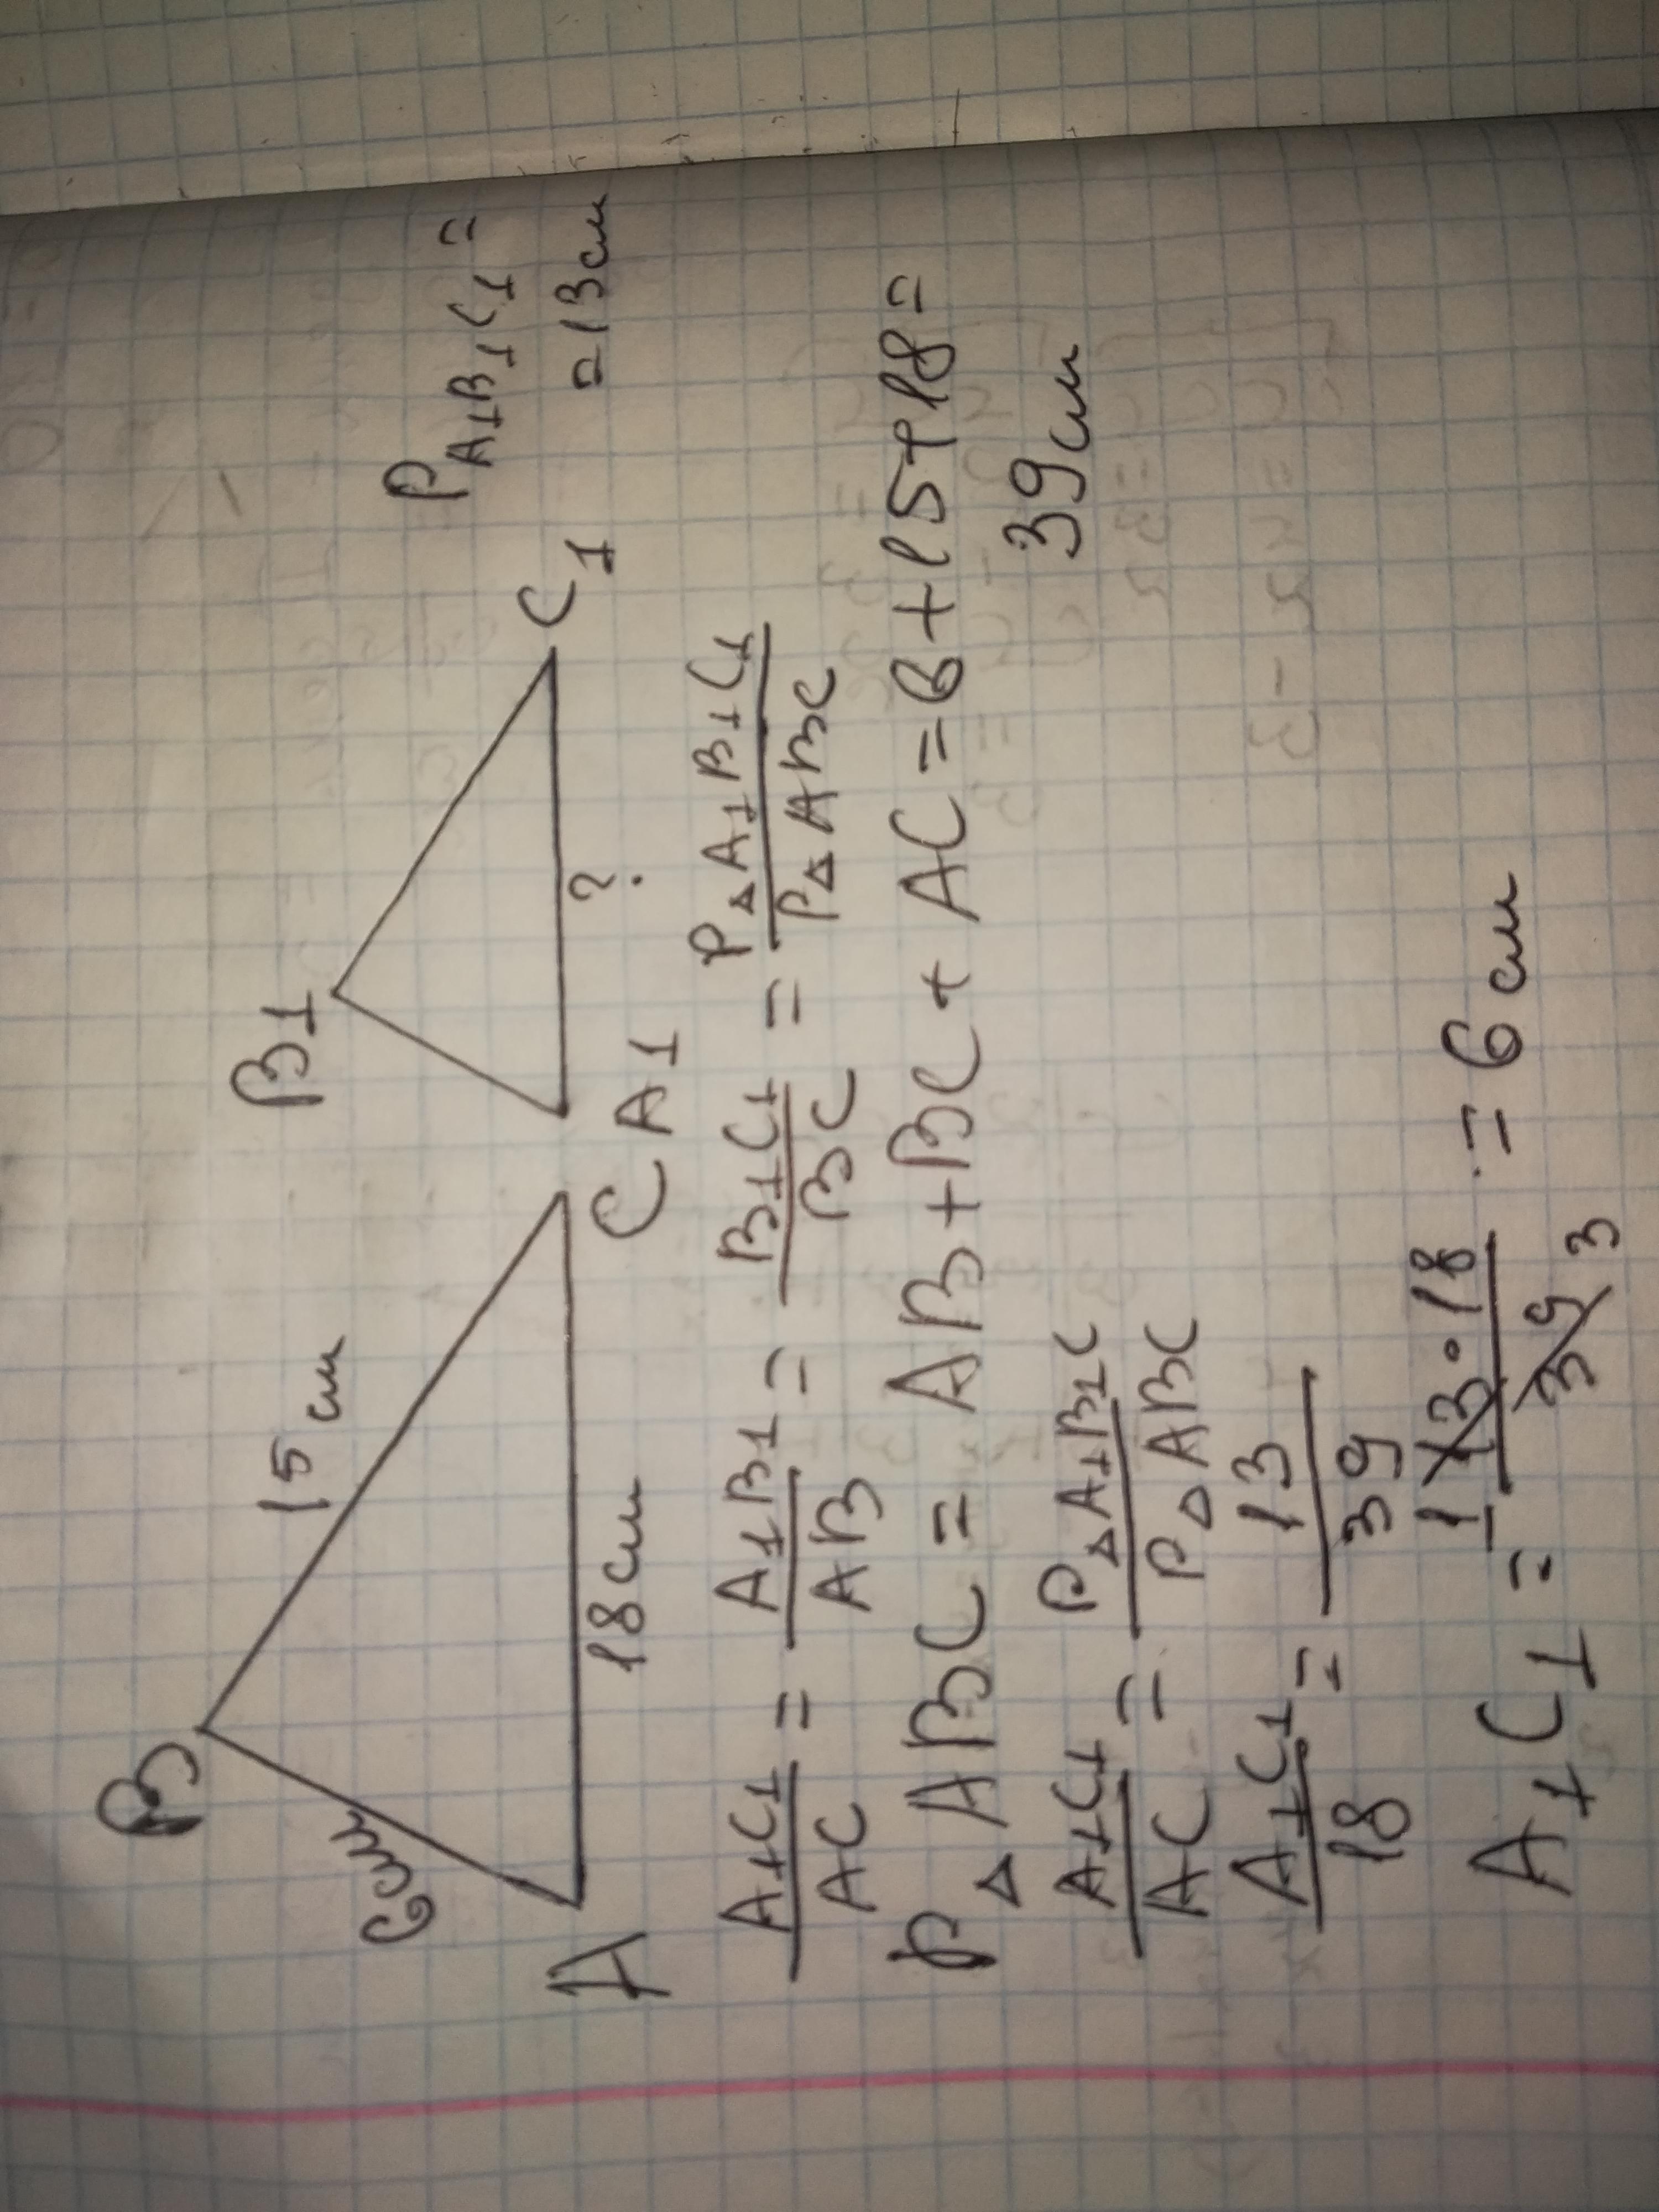 B
15 см
6 см
18 см
A
C
B₁
A₁
C₁
?
P A₁B₁C₁ =
= 13 см
A₁C₁/AC = A₁B₁/AB = B₁C₁/BC = P△A₁B₁C₁/P△ABC
P△ABC = AB + BC + AC = 6 + 15 + 18 =
39 см
A₁C₁/AC = P△A₁B₁C/P△ABC
A₁C₁/18 = 13/39
A₁C₁ = 1 13 · 18/39 3 = 6 см